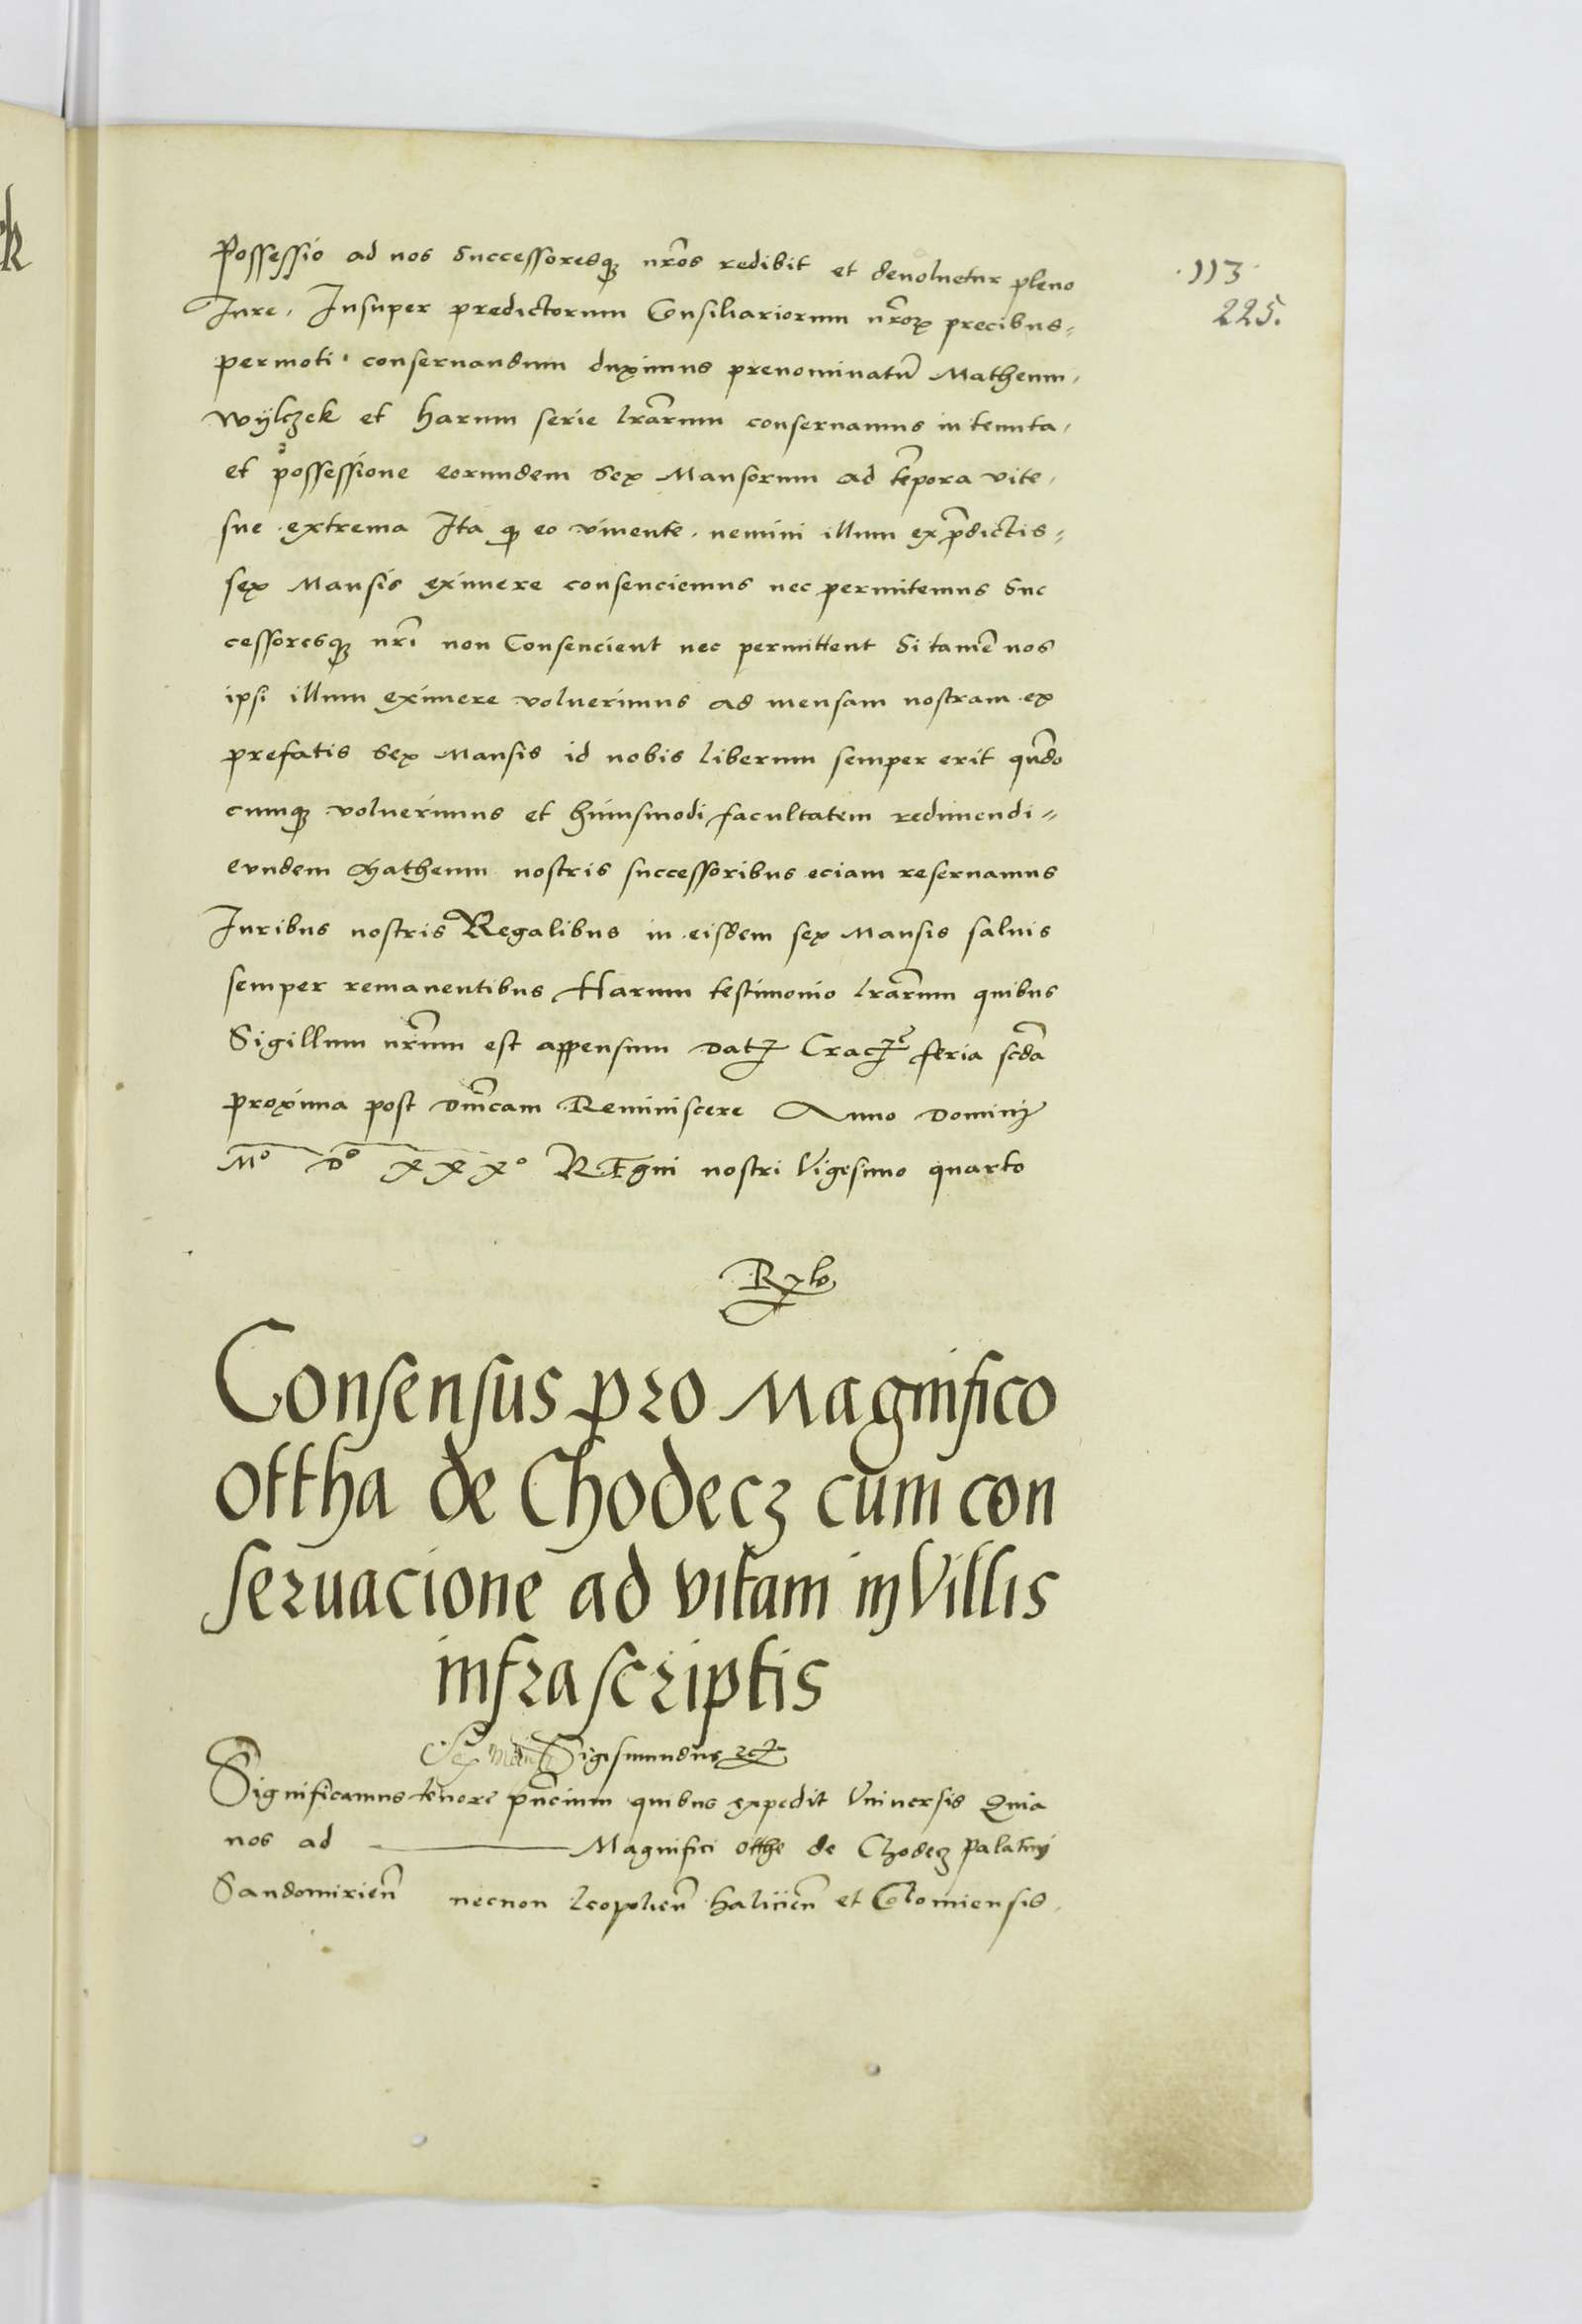 Possessio ad nos Successoresqꝫ nr̃os redibit et deuoluetur pleno
·113·
Iure. Insuper predictorum Consiliariorum nr̃oꝝ precibus
225.
permoti conseruandum duximus prenominatũ Matheum
Wÿlczek et harum serie lr̃arum conseruamus in tenuta
et possessione eorundem Sex Mansorum ad tẽpora vite
sue extrema Ita qꝫ eo viuente nemini illum ex p̃dictis
sex Mansis eximere consenciemus nec permitemus Suc
cessoresqꝫ nr̃i non Consencient nec permittent Si tamẽ nos
ipsi illum eximere voluerimus ad mensam nostram ex
prefatis Sex Mansis id nobis liberum semper erit qñdo
cumqꝫ voluerimus et huiusmodi facultatem redimendi
eundem Matheum nostris successoribus eciam reseruamus
Iuribus nostris Regalibus in eisdem sex Mansis saluis
semper remanentibus Harum testimonio lr̃arum quibus
Sigillum nr̃um est appensum Datꝫ Cracꝫ feria scd̃a
proxima post Dn̄icam Reminiscere Anno Domini
Mº Dº XXXº REgni nostri Vigesimo quarto
Consensus pro Magnifico
ottha de Chodecz cum con
seruacione ad vitam in Villis
infrascriptis
Sigismundus
Significamus tenore pñcium quibus expedit Vniuersis Quia
nos ad Magnifici Otthe de Chodecz Palatini
Sandomirieñ necnon Leopolieñ halicieñ et Colomiensis